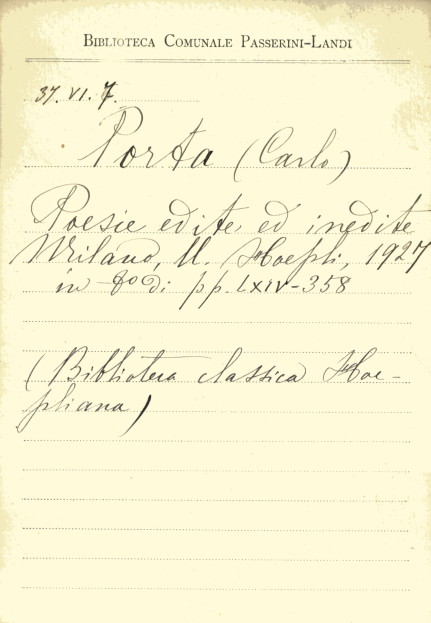 BIBLIOTECA COMUNALE PASSERINI-LANDI
37. VI. 7.
Porta (Carlo)
Poesie edite ed inedite
Milano, U. Hoepli, 1927
in 8° di pp. LXIV-358
(Biblioteca classica Hoe-
pliana)